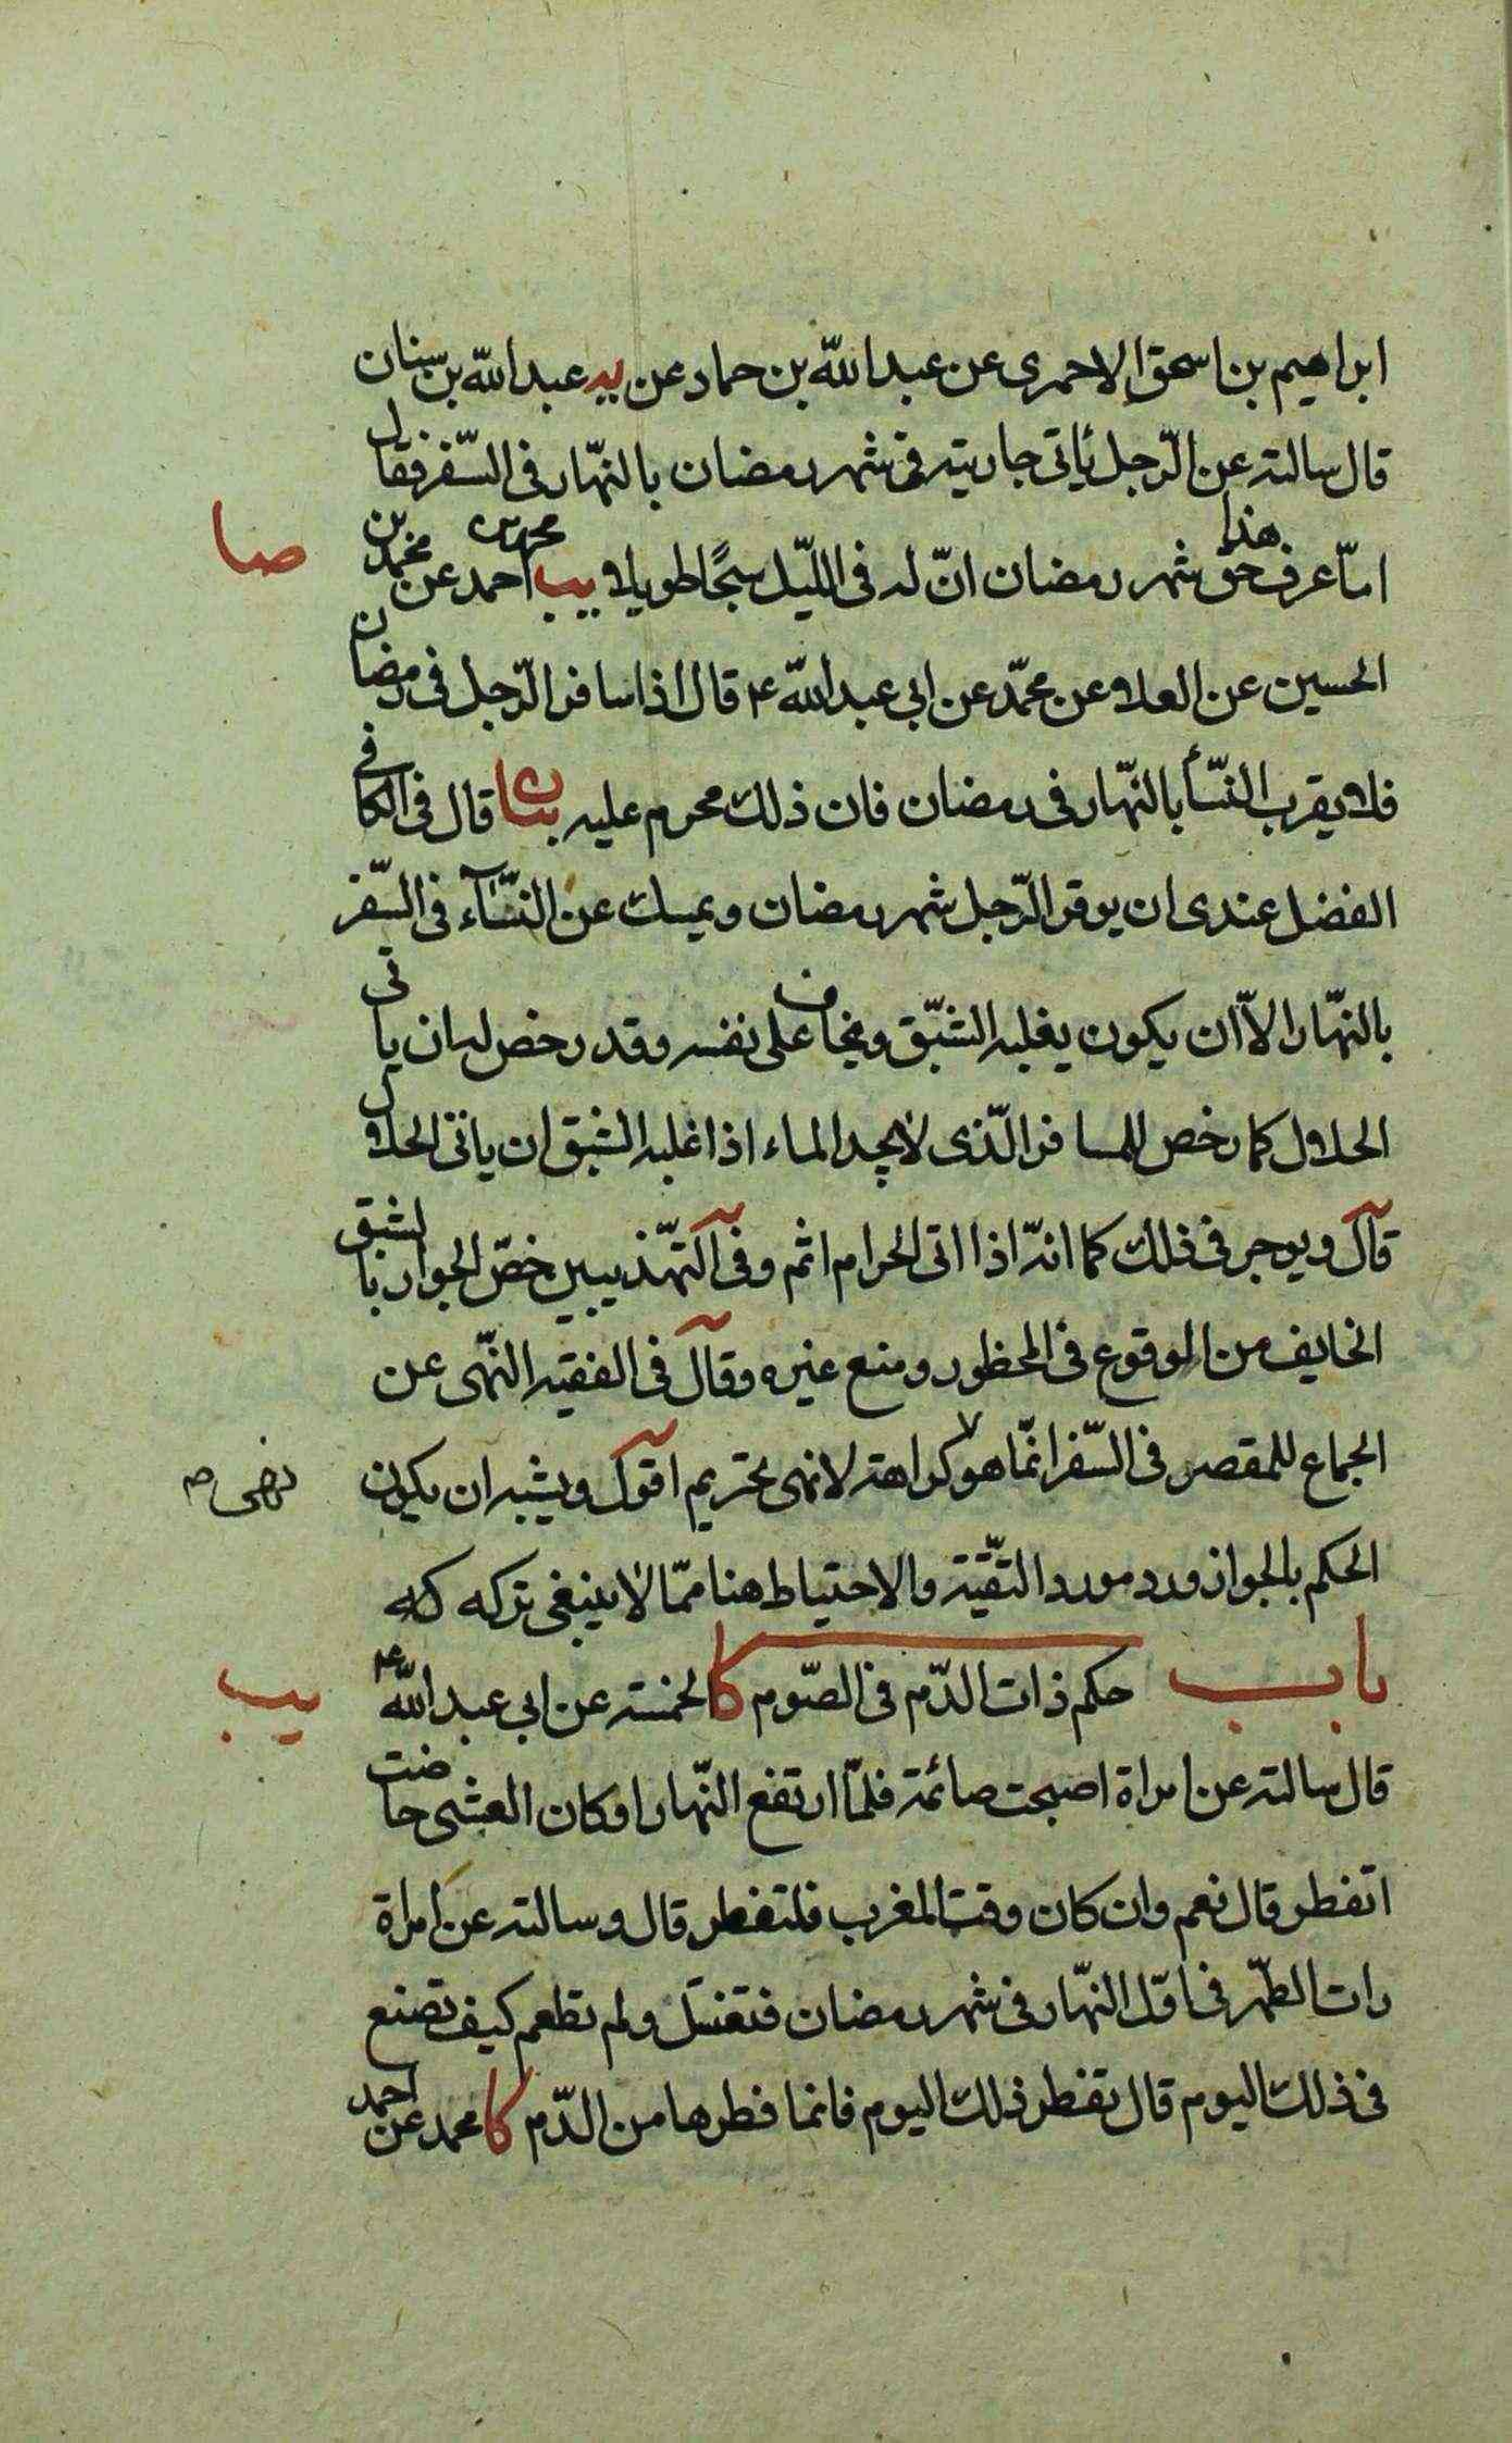 ابراهيم بن اسحق الاحمرى عن عبد الله بن حماد عن يه عبد الله بن سنان
قال سالته عن الرّجل ياتى جاريته فى شهر رمضان بالنهّار فى السّفر فقال
امّا عرف هذا حق شهر رمضان انّ له فى اللّيل سبحًا طويلا يب احمد عن محمد بن
صا
الحسين عن العلا عن محمّد عن ابى عبد الله ع قال اذا سافر الرّجل فى رمضان
فلا يقرب النّسأ بالنهّار فى رمضان فان ذلك محرم عليه بيان قال فى الكافى
الفضل عندى ان يوقر الرّجل شهر رمضان ويمسك عن النسّآء فى السّفر
بالنهّار الاّ ان يكون يغلبه الشّبق ويخاف على نفسه وقد رخص له ان ياتى
الحلال كما رخص للمسافر الّذى لا يجد الماء اذا غلبه الشبق ان ياتى الحلال
قال ويوجر فى ذلك كما انّه اذا اتى الحرام اثم وفى التهّذيبين خصّ الجواز بالشبق
الخايف من الوقوع فى المحظور ومنع غيره وقال فى الفقيه النهّى عن
الجماع للمقصر فى السّفر انمّا هو كراهة لا نهى تحريم اقول ويشبه ان يكون
نهى ص
الحكم بالجواز ورد مورد التقّية والاحتياط هنا ممّا لا ينبغى تركه
باب حكم ذات الدّم فى الصّوم كا الخمسة عن ابى عبد الله ع
يب
قال سالته عن امراة اصبحت صائمة فلمّا ارتفع النهّار او كان العشى حاضت
اتفطر قال نعم وان كان وقت المغرب فلتفطر قال وسالته عن امراة
رات الطهّر فى اوّل النهّار فى شهر رمضان فتغتسل ولم تطعم كيف تصنع
فى ذلك اليوم قال تفطر ذلك اليوم فانما فطرها من الدّم كا محمد عن احمد